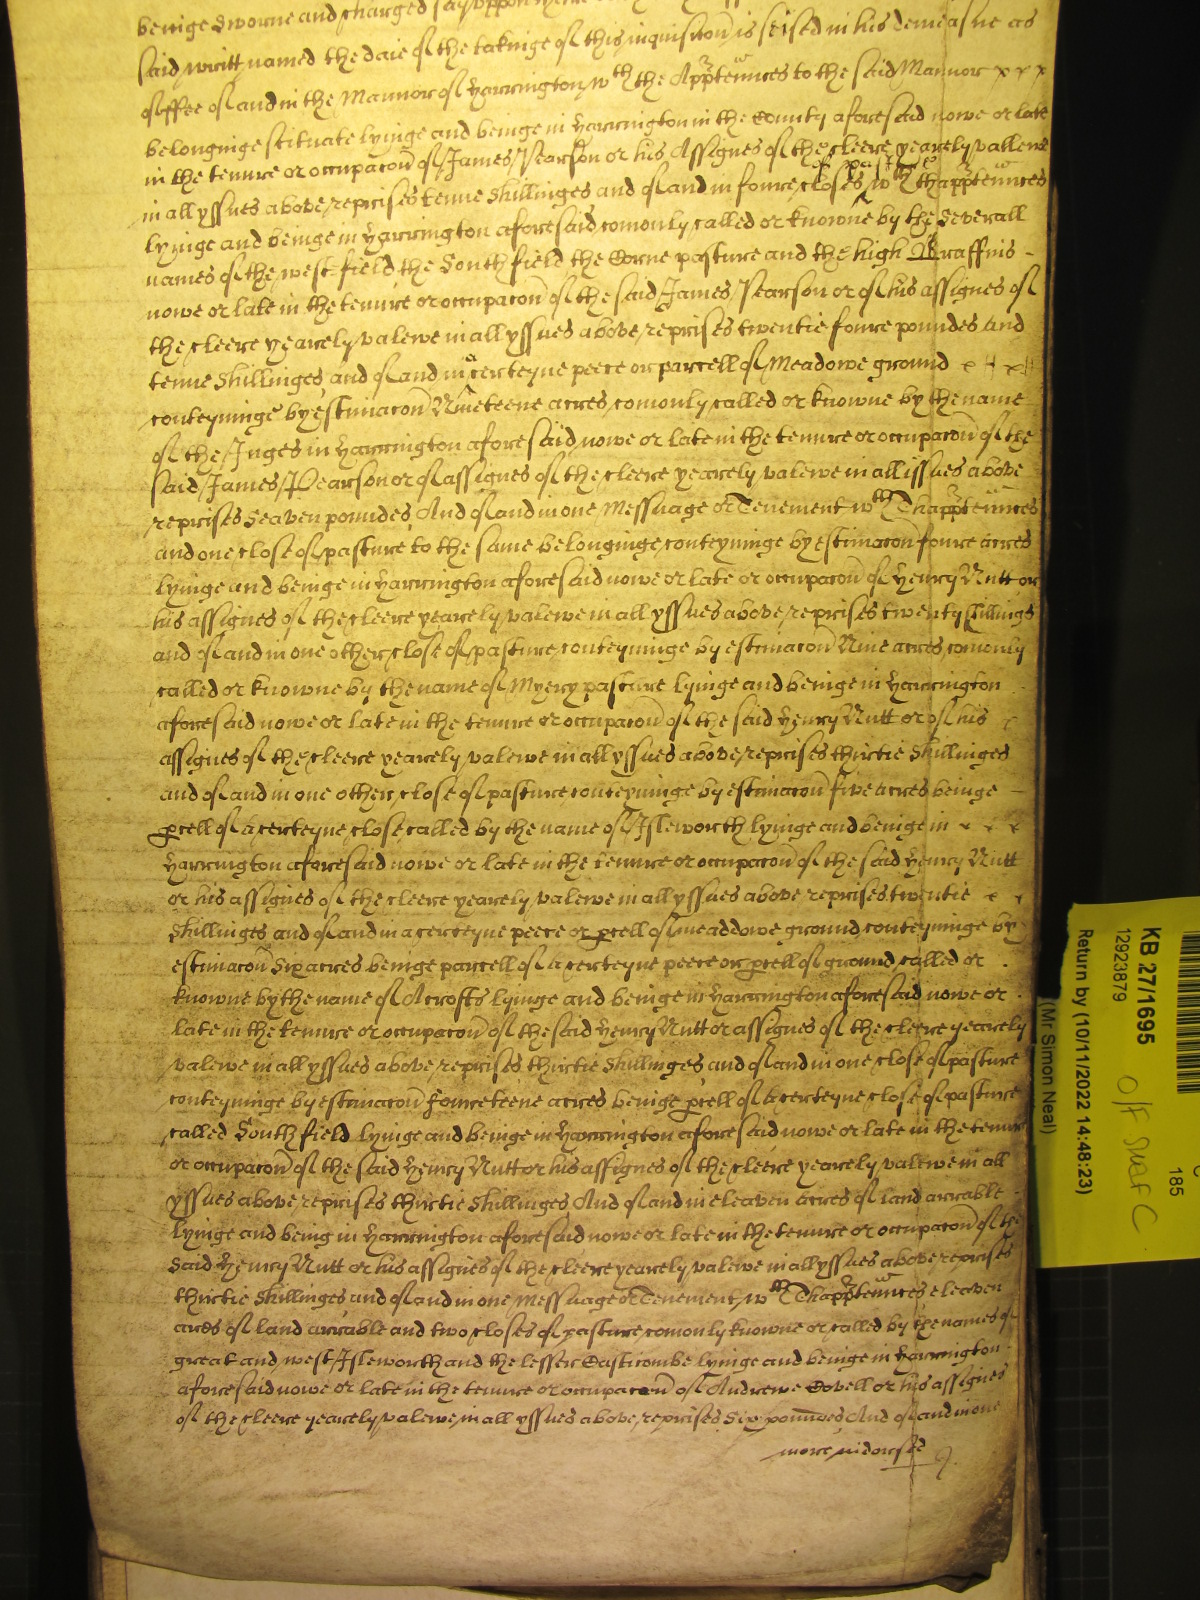 beinge sworne and charged say uppon
said writt named the daie of the takinge of this inquisicon is seised in his demeasne as
of ffee of and in the Mannor of Harrington wth the Apptennces to the said Mannor x x x
belonginge scituate lyinge and beinge in Harrington in the County aforesaid nowe or late
in the tenure or occupacon of James Pearson or his Assignes of the cleere yearely vallewe
in all yssues above reprises tenne shillinges and of and in foure closes of pasture wth thapptennces
lyinge and beinge in Harrington aforesaid comonly called or knowne by the severall
names of the west field the South field the Corne pasture and the high
nowe or late in the tenure or occupacon of the said James Pearson or of his assignes of
the cleere yearely valewe in all yssues above reprises twentie foure poundes and
tenne shillinges and of and in a certeyne peece or parcell of Meadowe ground
conteyninge by estimacon Nineteene acres comonly called or knowne by the name
of the Inges in Harrington aforesaid nowe or late in the tenure or occupacon of the
said James Pearson or of assignes of the cleere yearely valewe in all issues above
reprises Seaven poundes And of and in one Messuage or Tenement wth Thapptennces
and one close of pasture to the same belonginge conteyninge by estimacon foure acres
lyinge and beinge in Harrington aforesaid nowe or late or occupacon of Henry Nutt or
his assignes of the cleere yearely valewe in all yssues above reprises twenty shillings
and of and in one other close of pasture conteyninge by estimacon Nine acres comonly
called or knowne by the name of Myery pasture lyinge and beinge in Harrington
aforesaid nowe or late in the tenure or occupacon of the said Henry Nutt or of his
assignes of the cleere yearely valewe in all yssues above reprises thirtie shillinges
and of and in one other close of pasture conteyninge by estimacon five acres beinge
pcell of a certeyne close called by the name of Isleworth lyinge and beinge in
Harrington aforesaid nowe or late in the tenure or occupacon of the said Henry Nutt
or his assignes of the cleere yearely valewe in all yssues above reprises twentie
shillinges and of and in a certeyne peece or pcell of meaddowe ground conteyninge by
estimacon Six acres beinge parcell of a certeyne peece or pcell of ground called or
knowne by the name of Acrofts lyinge and beinge in Harrington aforesaid nowe or
late in the tenure or occupacon of the said Henry Nutt or assignes of the cleere yearely
valewe in all yssues above reprises thirtie shillinges and of and in one close of pasture
conteyninge by estimacon fourteene acres beinge pcell of a certeyne close of pasture
called South field lyinge and beinge in Harrington aforesaid nowe or late in the tenure
or occupacon of the said Henry Nutt or his assignes of the cleere yearely valewe in all
yssues above reprises thirtie shillinges And of and in eleaven acres of land arrable
lyinge and being in Harrington aforesaid nowe or late in the tenure or occupacon of the
said Henry Nutt or his assignes of the cleere yearely valewe in all yssues above reprises
thirtie shillinges and of and in one Messuage or Tenement wth Thapptennces eleaven
acres of land arrable and two closes of pasture comonly knowne or called by the names of
great and west Isleworth and the lesser Eastcombe lyinge and beinge in Harrington
aforesaid nowe or late in the tenure or occupacon of Andrewe Covell or his assignes
of the cleere yearely valewe in all yssues above reprises Six poundes And of and in one
more indorsed
KB 27/1695
12923879
O/F
185
Return by (10/11/2022 14:48:23)
(Mr Simon Neal)